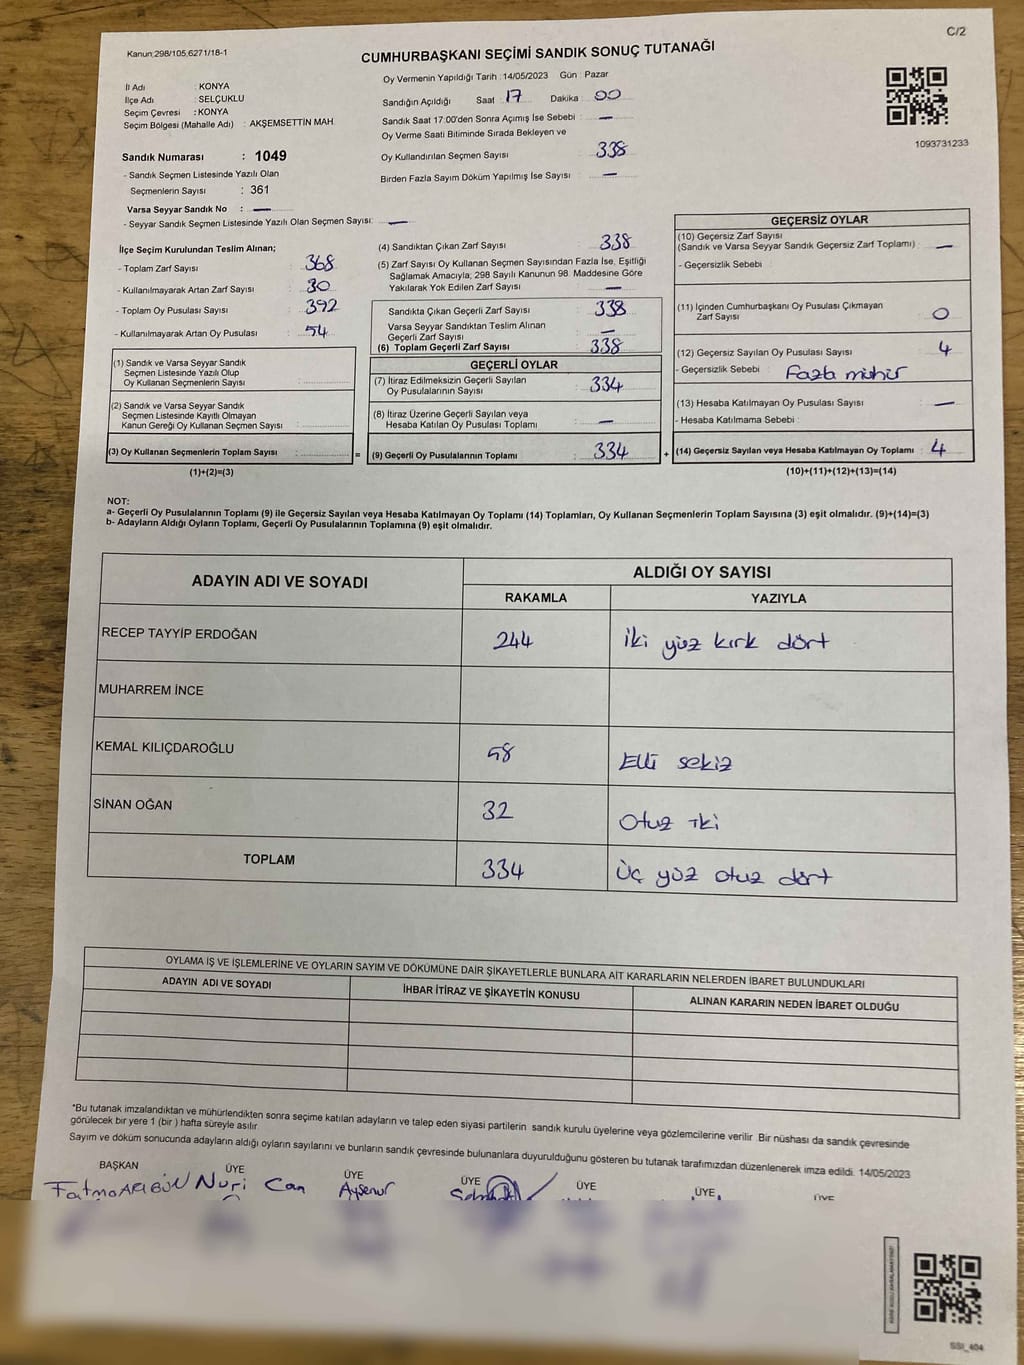 C/2
Kanun:298/105,6271/18-1
CUMHURBAŞKANI SEÇİMİ SANDIK SONUÇ TUTANAĞI
İl Adı : KONYA
İlçe Adı : SELÇUKLU
Seçim Çevresi : KONYA
Seçim Bölgesi (Mahalle Adı) : AKŞEMSETTİN MAH.
Oy Vermenin Yapıldığı Tarih : 14/05/2023 Gün : Pazar
Sandığın Açıldığı Saat : 17 Dakika : 00
Sandık Saat 17:00'den Sonra Açımış İse Sebebi : —
Oy Verme Saati Bitiminde Sırada Bekleyen ve
Oy Kullandırılan Seçmen Sayısı : 338
Birden Fazla Sayım Döküm Yapılmış İse Sayısı : —
1093731233
Sandık Numarası : 1049
- Sandık Seçmen Listesinde Yazılı Olan
Seçmenlerin Sayısı : 361
Varsa Seyyar Sandık No : —
- Seyyar Sandık Seçmen Listesinde Yazılı Olan Seçmen Sayısı: —
İlçe Seçim Kurulundan Teslim Alınan;
- Toplam Zarf Sayısı : 368
- Kullanılmayarak Artan Zarf Sayısı : 30
- Toplam Oy Pusulası Sayısı : 392
- Kullanılmayarak Artan Oy Pusulası : 54
(1) Sandık ve Varsa Seyyar Sandık
Seçmen Listesinde Yazılı Olup
Oy Kullanan Seçmenlerin Sayısı :
(2) Sandık ve Varsa Seyyar Sandık
Seçmen Listesinde Kayıtlı Olmayan
Kanun Gereği Oy Kullanan Seçmen Sayısı :
(3) Oy Kullanan Seçmenlerin Toplam Sayısı :
(1)+(2)=(3)
(4) Sandıktan Çıkan Zarf Sayısı : 338
(5) Zarf Sayısı Oy Kullanan Seçmen Sayısından Fazla İse, Eşitliği
Sağlamak Amacıyla; 298 Sayılı Kanunun 98. Maddesine Göre
Yakılarak Yok Edilen Zarf Sayısı : —
Sandıkta Çıkan Geçerli Zarf Sayısı : 338
Varsa Seyyar Sandıktan Teslim Alınan
Geçerli Zarf Sayısı : —
(6) Toplam Geçerli Zarf Sayısı : 338
GEÇERLİ OYLAR
(7) İtiraz Edilmeksizin Geçerli Sayılan
Oy Pusulalarının Sayısı : 334
(8) İtiraz Üzerine Geçerli Sayılan veya
Hesaba Katılan Oy Pusulası Toplamı : —
= (9) Geçerli Oy Pusulalarının Toplamı : 334 +
GEÇERSİZ OYLAR
(10) Geçersiz Zarf Sayısı
(Sandık ve Varsa Seyyar Sandık Geçersiz Zarf Toplamı) : —
- Geçersizlik Sebebi :
(11) İçinden Cumhurbaşkanı Oy Pusulası Çıkmayan
Zarf Sayısı : 0
(12) Geçersiz Sayılan Oy Pusulası Sayısı : 4
- Geçersizlik Sebebi : Fazla mühür
(13) Hesaba Katılmayan Oy Pusulası Sayısı : —
- Hesaba Katılmama Sebebi :
(14) Geçersiz Sayılan veya Hesaba Katılmayan Oy Toplamı : 4
(10)+(11)+(12)+(13)=(14)
NOT:
a- Geçerli Oy Pusulalarının Toplamı (9) ile Geçersiz Sayılan veya Hesaba Katılmayan Oy Toplamı (14) Toplamları, Oy Kullanan Seçmenlerin Toplam Sayısına (3) eşit olmalıdır. (9)+(14)=(3)
b- Adayların Aldığı Oyların Toplamı, Geçerli Oy Pusulalarının Toplamına (9) eşit olmalıdır.
ADAYIN ADI VE SOYADI
ALDIĞI OY SAYISI
RAKAMLA YAZIYLA
RECEP TAYYİP ERDOĞAN 244 İki yüz kırk dört
MUHARREM İNCE
KEMAL KILIÇDAROĞLU 58 Elli sekiz
SİNAN OĞAN 32 Otuz iki
TOPLAM 334 Üç yüz otuz dört
OYLAMA İŞ VE İŞLEMLERİNE VE OYLARIN SAYIM VE DÖKÜMÜNE DAİR ŞİKAYETLERLE BUNLARA AİT KARARLARIN NELERDEN İBARET BULUNDUKLARI
ADAYIN ADI VE SOYADI İHBAR İTİRAZ VE ŞİKAYETİN KONUSU ALINAN KARARIN NEDEN İBARET OLDUĞU
*Bu tutanak imzalandıktan ve mühürlendikten sonra seçime katılan adayların ve talep eden siyasi partilerin sandık kurulu üyelerine veya gözlemcilerine verilir. Bir nüshası da sandık çevresinde
görülecek bir yere 1 (bir) hafta süreyle asılır.
Sayım ve döküm sonucunda adayların aldığı oyların sayılarını ve bunların sandık çevresinde bulunanlara duyurulduğunu gösteren bu tutanak tarafımızdan düzenlenerek imza edildi. 14/05/2023
BAŞKAN ÜYE ÜYE ÜYE ÜYE ÜYE ÜYE
Fatma Nuri Can Ayşenur
SSI_404